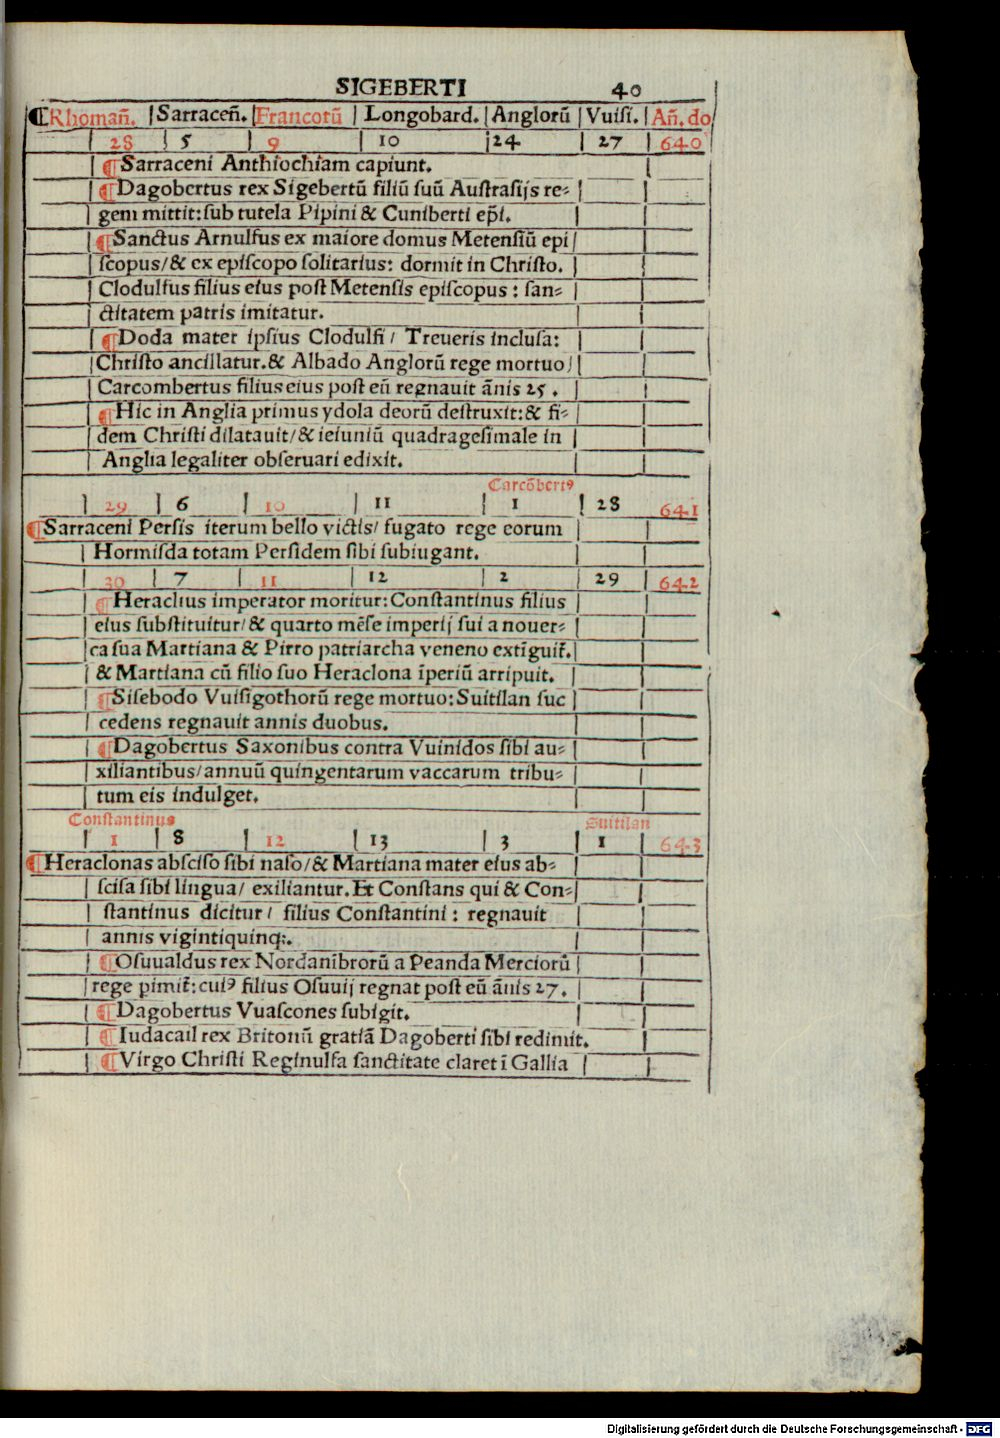 SIGEBERTI 40
¶Rhomañ. Sarraceñ. Francotũ Longobard. Anglorũ Vuisi. Añ. do
28 5 9 10 24 27 640
¶Sarraceni Anthiochiam capiunt.
¶Dagobertus rex Sigebertũ filiũ suũ Austrasijs re-
gem mittit: sub tutela Pipini & Cuniberti ep̃i.
¶Sanctus Arnulfus ex maiore domus Metensiũ epi
scopus/ & ex episcopo solitarius: dormit in Christo.
Clodulfus filius eius post Metensis episcopus: san-
ctitatem patris imitatur.
¶Doda mater ipsius Clodulfi/ Treueris inclusa:
Christo ancillatur. & Albado Anglorũ rege mortuo/
Carcombertus filius eius post eũ regnauit ãnis 25.
¶Hic in Anglia primus ydola deorũ destruxit: & fi-
dem Christi dilatauit/ & ieiuniũ quadragesimale in
Anglia legaliter obseruari edixit.
Carcõbertꝰ
29 6 10 11 1 28 641
¶Sarraceni Persis iterum bello victis/ fugato rege eorum
Hormisda totam Persidem sibi subiugant.
30 7 11 12 2 29 642
¶Heraclius imperator moritur: Constantinus filius
eius substituitur/ & quarto mẽse imperij sui a nouer-
ca sua Martiana & Pirro patriarcha veneno extĩguit̃.
& Martiana cũ filio suo Heraclona ĩperiũ arripuit.
¶Sisebodo Vuisigothorũ rege mortuo: Suitilan suc
cedens regnauit annis duobus.
¶Dagobertus Saxonibus contra Vuinidos sibi au-
xiliantibus/ annuũ quingentarum vaccarum tribu-
tum eis indulget.
Constantinus Suitilan
1 8 12 13 3 1 643
¶Heraclonas absciso sibi naso/ & Martiana mater eius ab-
scisa sibi lingua/ exiliantur. Et Constans qui & Con-
stantinus dicitur/ filius Constantini: regnauit
annis vigintiquinq;.
¶Osuualdus rex Nordanĩbrorũ a Peanda Merciorũ
rege pimit̃: cuiꝰ filius Osuuij regnat post eũ ãnis 27.
¶Dagobertus Vuascones subigit.
¶Iudacail rex Britonũ gratiã Dagoberti sibi redimit.
¶Virgo Christi Reginulfa sanctitate claret ĩ Gallia
Digitalisierung gefördert durch die Deutsche Forschungsgemeinschaft - DFG